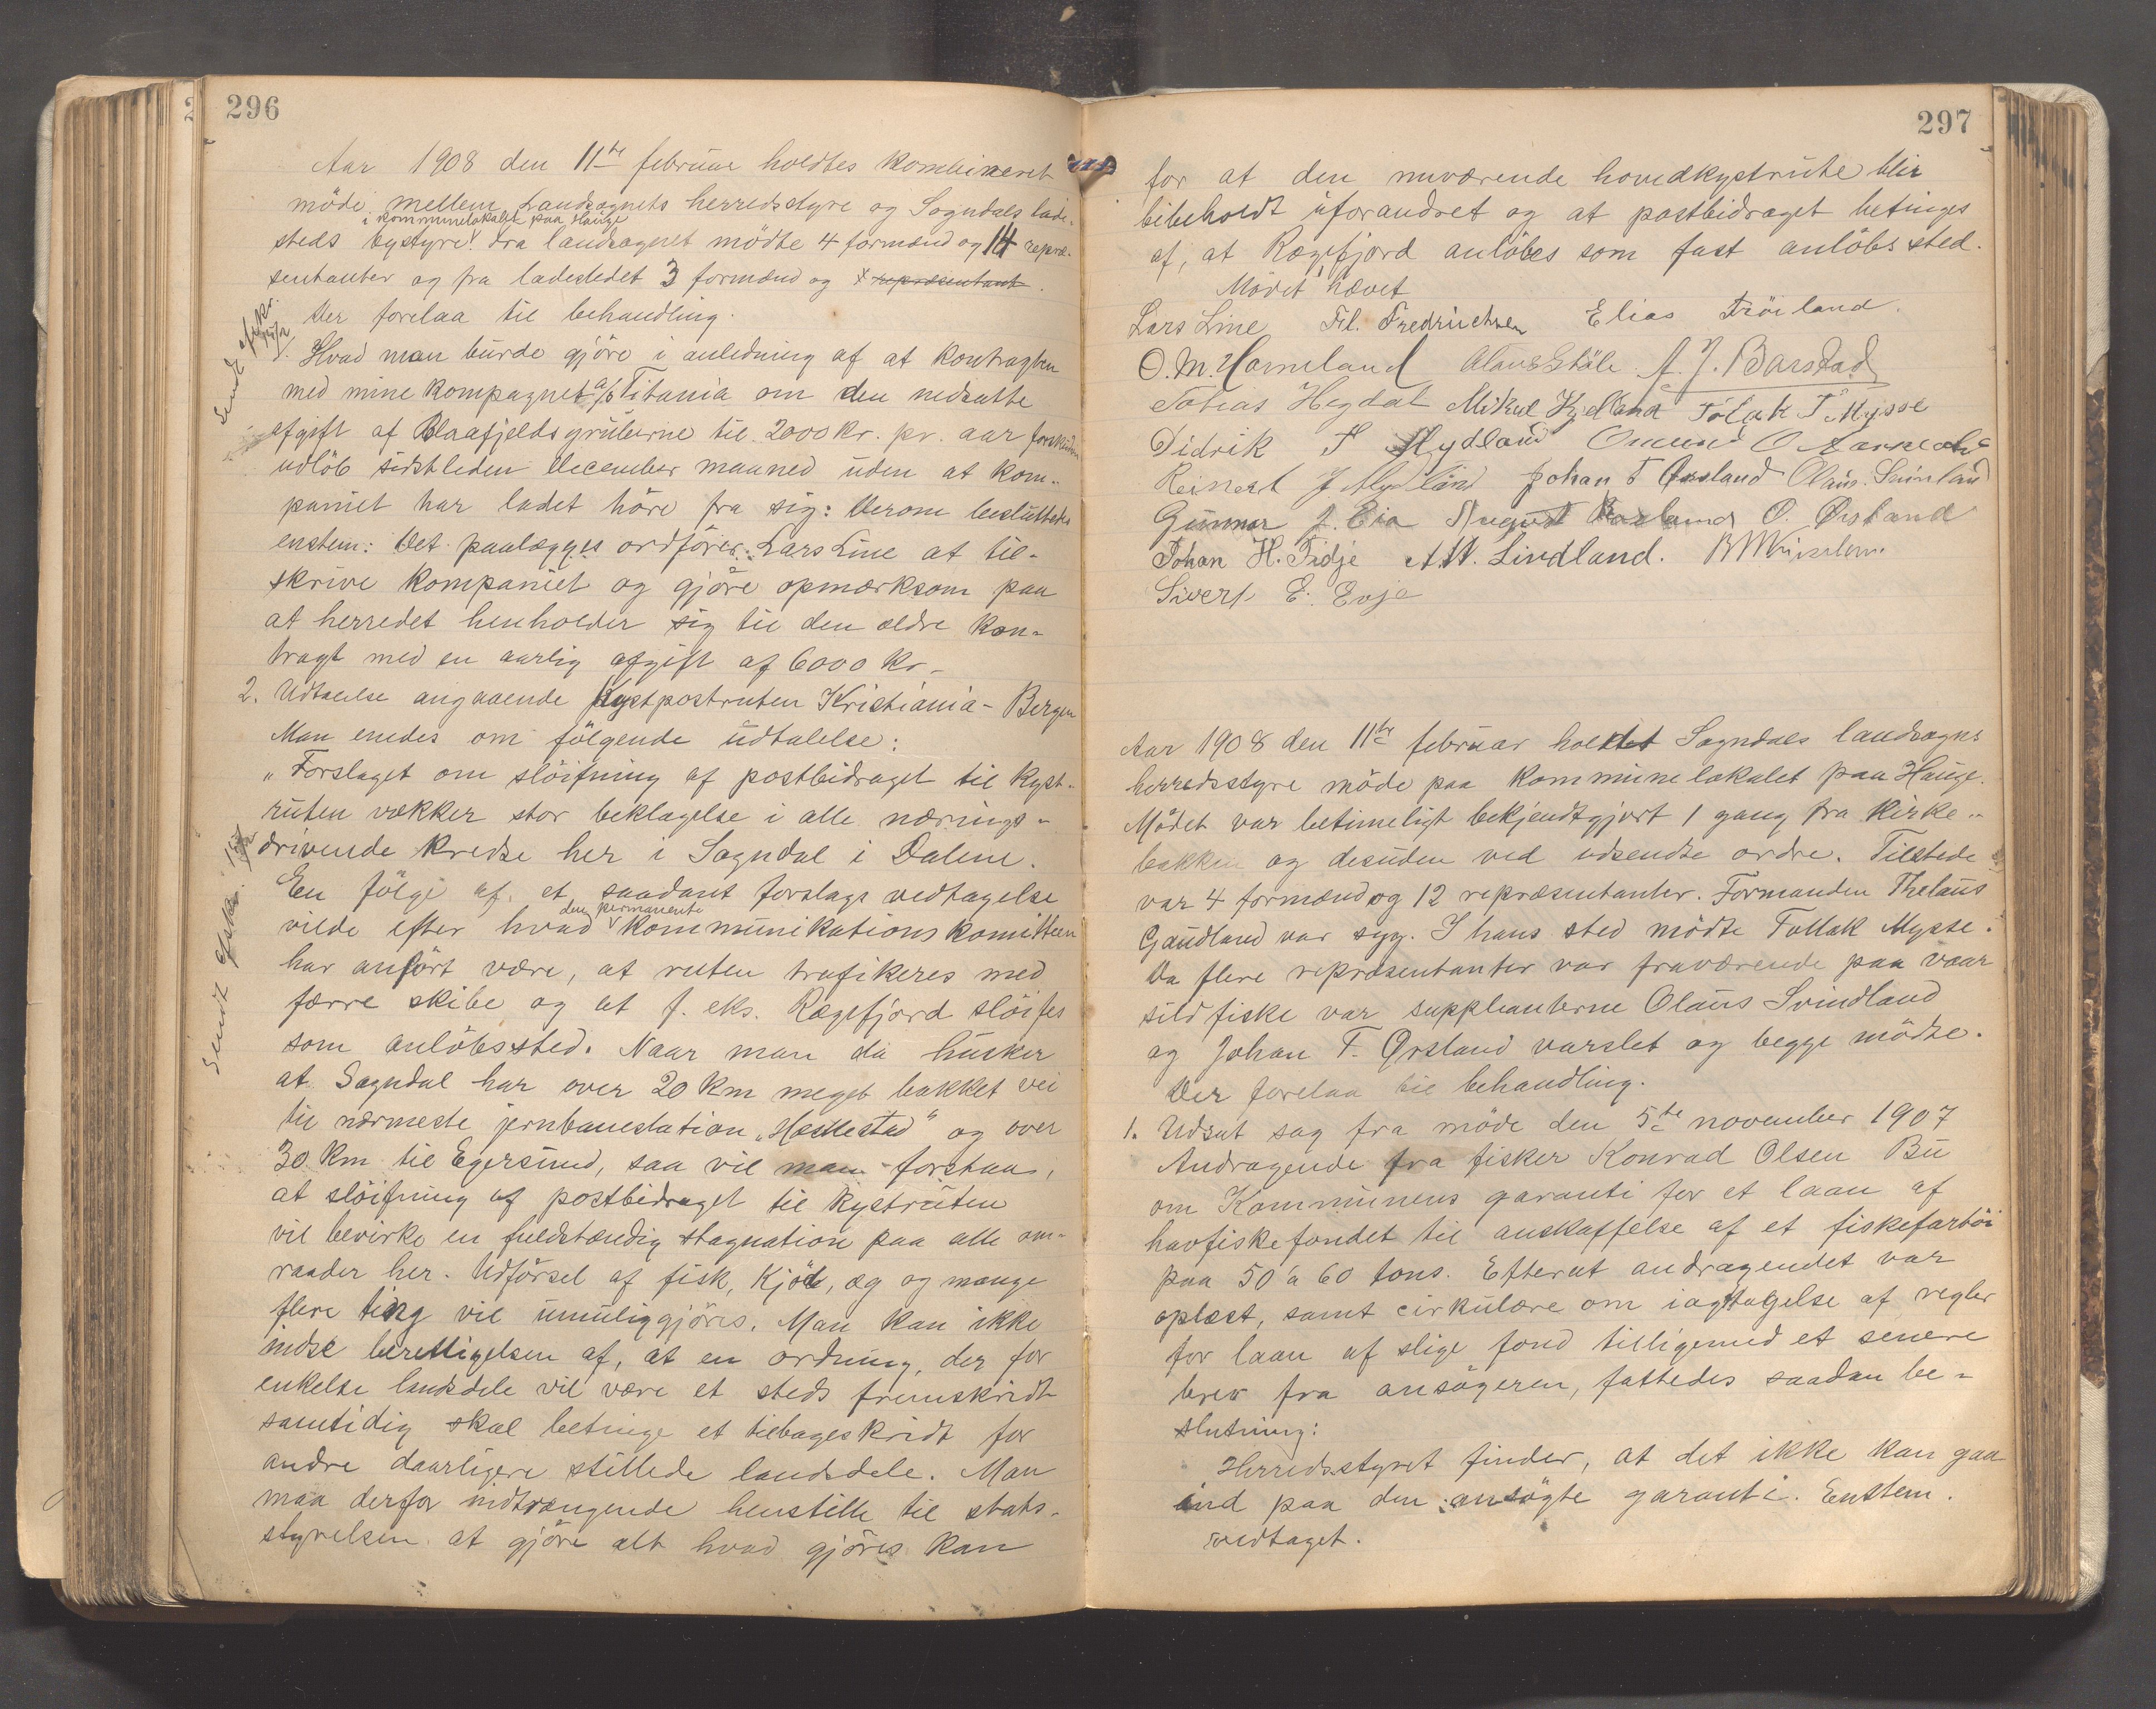 296
Aar 1908 den 11te februar holdtes kombineret
möde mellem Landsognets herredsstyre og Sogndals lade-
i kommunelokalet paa Hauge
steds bystyre. Fra landsognet mödte 4 formænd og 14 repræ-
sentanter og fra ladestedet 3 formænd og repræsentant.
Der forelaa til behandling.
Sendt afskr.
1. Hvad man burde gjöre i anledning af at kontragten
med mine kompagniet a/s Titania om den nedsatte
afgift af Blaafjeldsgruberne til 2000 kr. pr. aar
udlöb sidstleden december maaned uden at kom-
paniet har ladet höre fra sig: Derom besluttedes
enstem: Det paalægges ordförer Lars Line at til-
skrive kompaniet og gjöre opmærksom paa
at herredet henholder sig til den ældre kon-
tragt med en aarlig afgift af 6000 kr.-
2. Udtalelse angaaende Kystpostruten Kristiania-Bergen
Man enedes om fölgende udtalelse:
„Forslaget om slöifning af postbidraget til kyst-
ruten vækker stor beklagelse i alle nærings-
drivende kredse her i Sogndal i Dalene.
En fölge af et saadant forslags vedtagelse
den permanente
vilde efter hvad kommunikationskomitteen
har anfört være, at ruten trafikeres med
færre skibe og at f. eks. Rægefjord slöifes
som anlöbssted. Naar man da husker
at Sogndal har over 20 km meget bakket vei
til nærmeste jernbanestation „Heskestad" og over
30 km til Egersund, saa vil man forstaa,
at slöifning af postbidraget til kystruten
vil bevirke en fuldstændig stagnation paa alle om-
raader her. Udförsel af fisk, kjöd, æg og mange
flere ting vil umuliggjöres. Man kan ikke
indse berettigelsen af, at en ordning, der for
enkelte landsdele vil være et steds fremskridt
samtidig skal betinge et tilbageskridt for
andre daarligere stillede landsdele. Man
maa derfor indtrængende henstille til stats-
styrelsen at gjöre alt hvad gjöres kan
Sendt afskr.
297
for at den nuværende hovedkystrute blir
bibeholdt uforandret og at postbidraget betinges
af, at Rægefjord anlöbes som fast anlöbssted.
Mödet hævet
Lars Line Fredrichsen Elias Tröiland.
O. M. Homeland Claus Ståle A. J. Barstad
Tobias Hegdal Mikal Kjelland Tolak T Mysse
Didrik T Mydland Omund O
Reinert J Mydland Johan T Ørsland Olaus Svinland
Gunnar J. Eia August O. Ørsland
Johan H. Tidje A. W. Lindland.
Sivert E. Evje
Aar 1908 den 11te februar holdet Sogndals landsogns
herredsstyre möde paa kommunelokalet paa Hauge.
Mödet var betimeligt bekjendtgjort 1 gang fra kirke-
bakken og desuden ved udsendte ordre. Tilstede
var 4 formænd og 12 repræsentanter. Formanden Thelaus
Gaudland var syg. I hans sted mödte Tollak Mysse.
Da flere repræsentanter var fraværende paa vaar
sildfiske var suppleanterne Olaus Svindland
og Johan T. Ørsland varslet og begge mödte.
Der forelaa til behandling.
1. Udsat sag fra möde den 5te november 1907
Andragende fra fisker Konrad Olsen Bu
om Kommunens garanti for et laan af
havfiskefondet til anskaffelse af et fiskefartöi
paa 50 á 60 tons. Efterat andragendet var
oplæst, samt cirkulære om iagttagelse af regler
for laan af slige fond tilligemed et senere
brev fra ansögeren, fattedes saadan be-
slutning:
Herredsstyret finder, at det ikke kan gaa
ind paa den ansögte garanti. Enstem.
vedtaget.